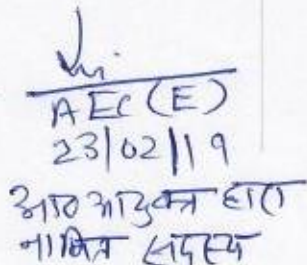 AEC (E)
23/02/19
आ० आयुक्त द्वारा
नामित सदस्य